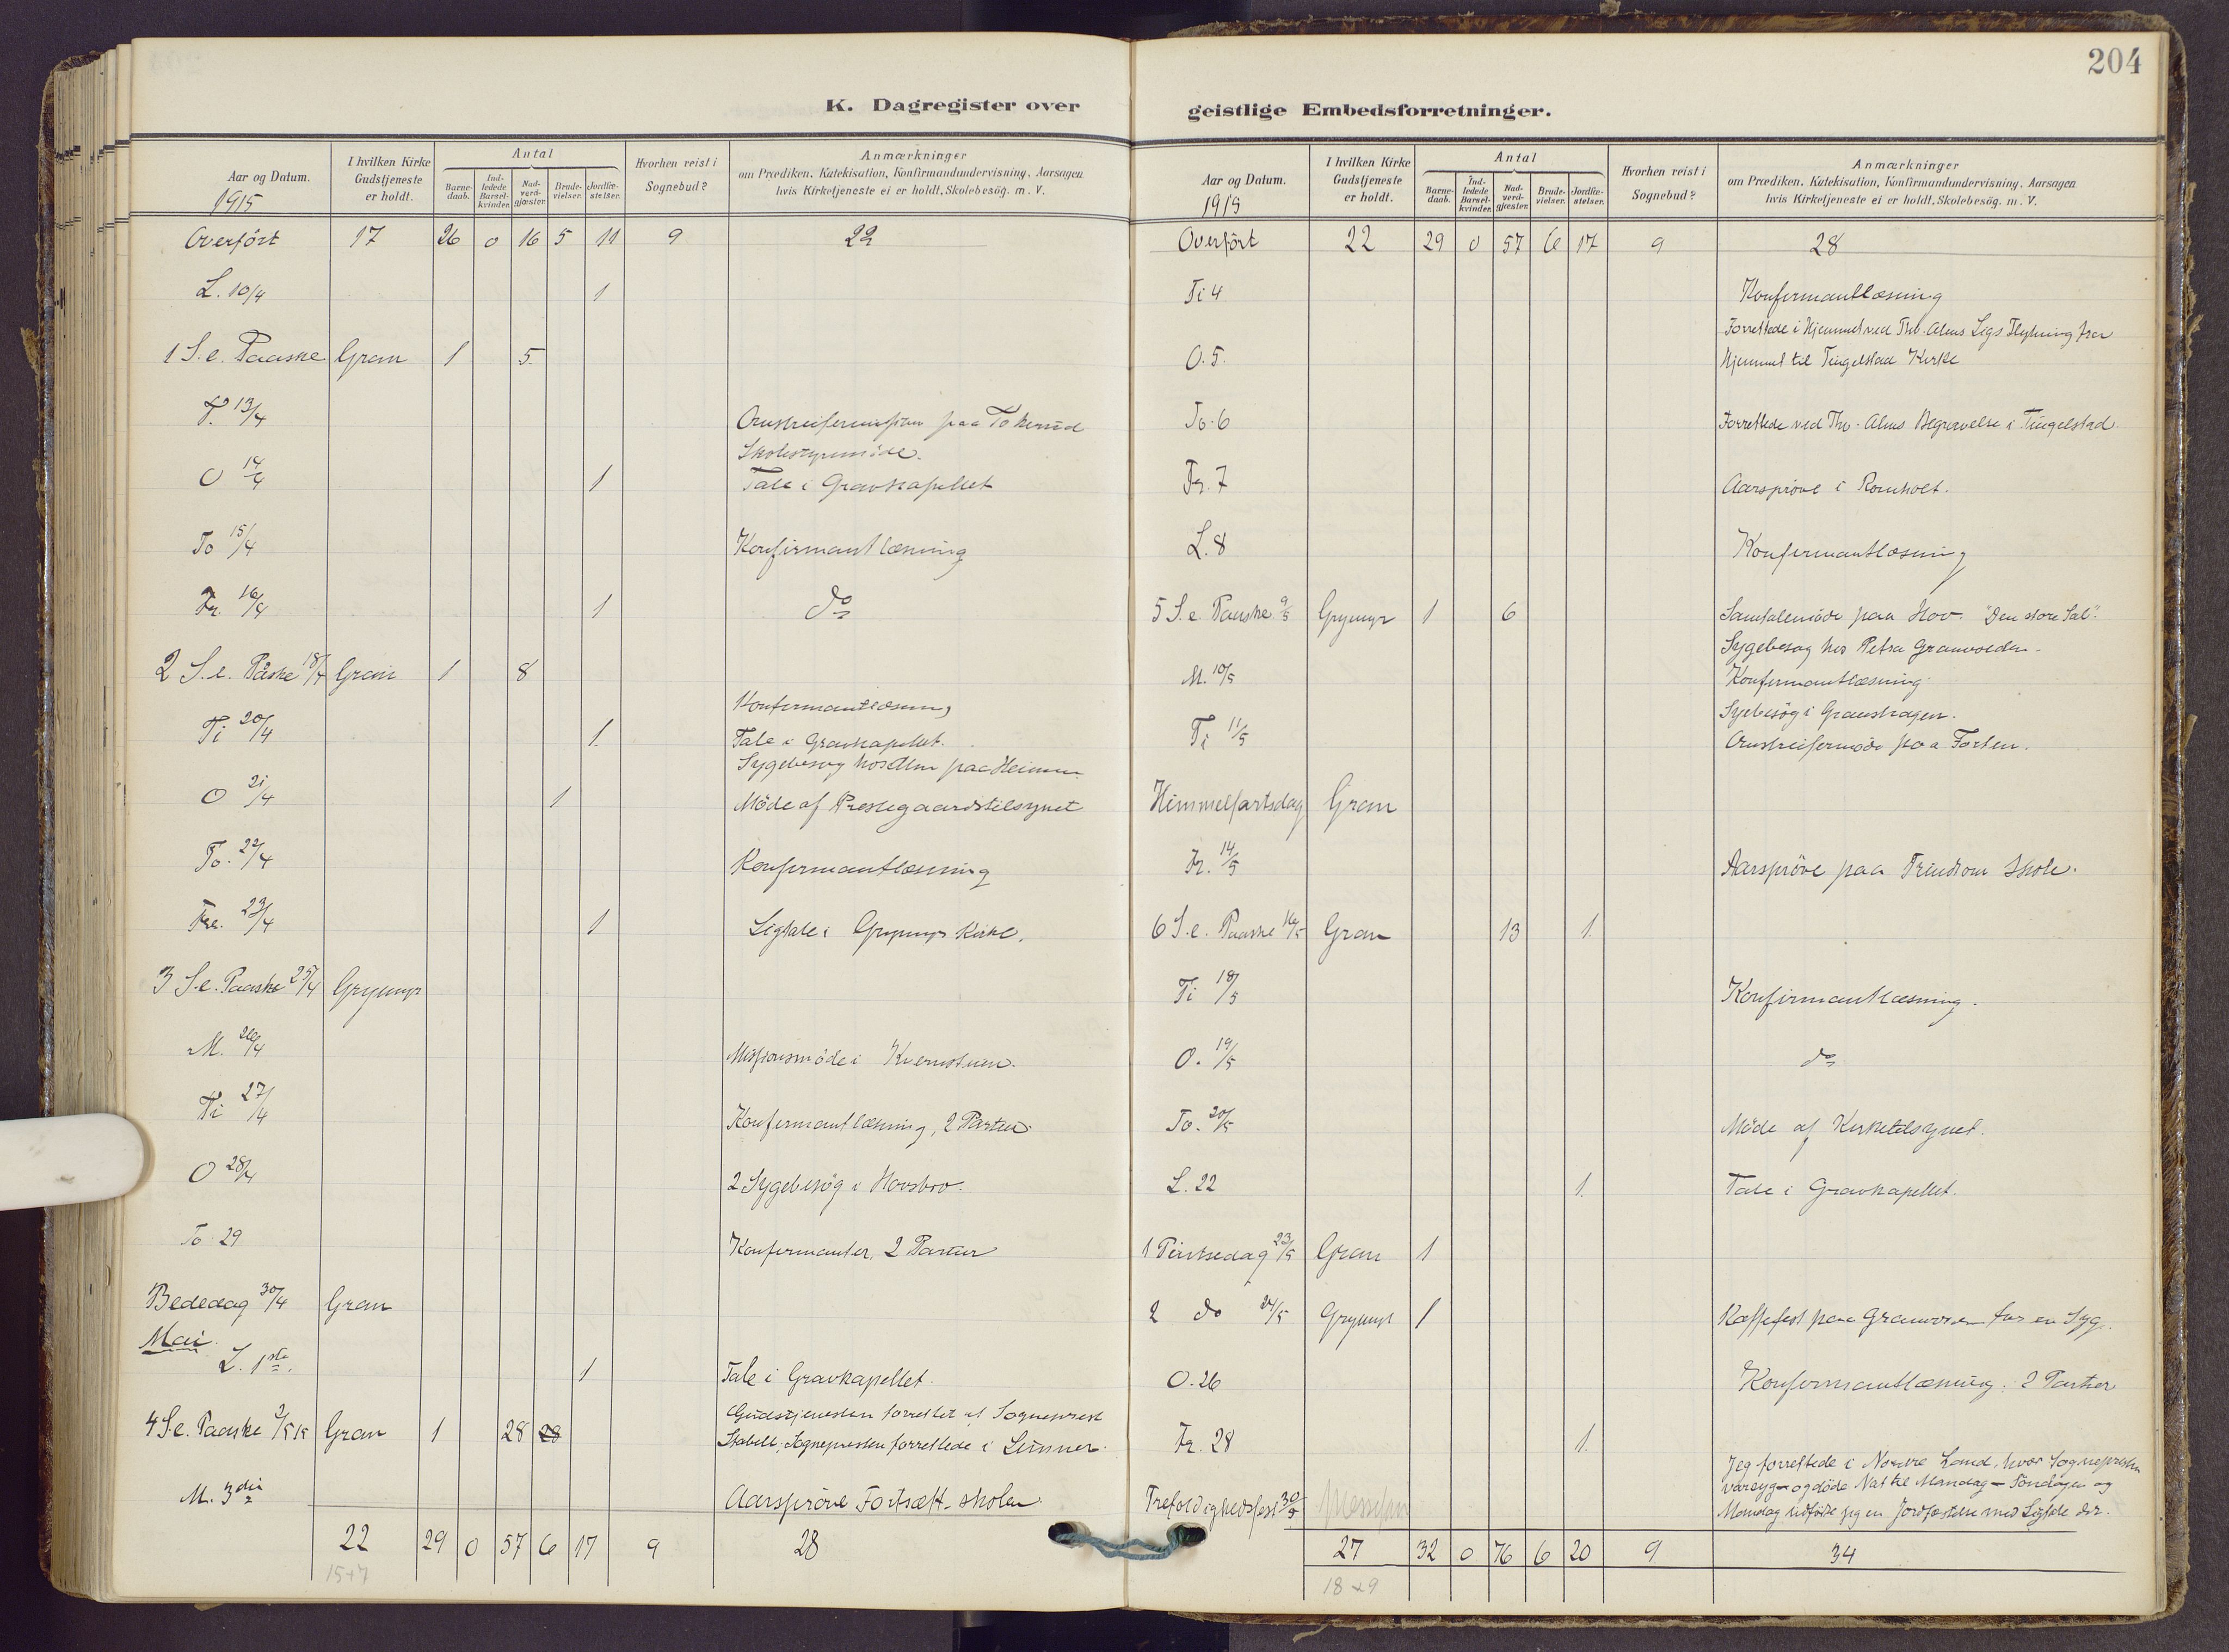 K. Dagregister over
Aar og Datum.
1915
I hvilken Kirke
Gudstjeneste
er holdt.
Antal
Barne-
daab.
Ind-
ledede
Barsel-
kvinder.
Nad-
verd-
gjæster.
Brude-
vielser.
Jordfæ-
stelser.
Hvorhen reist i
Sognebud?
Anmærkninger
om Prædiken, Katekisation, Konfirmandundervisning, Aarsagen
hvis Kirketjeneste ei er holdt, Skolebesög. m. V.
Overført 17 26 0 16 5 11 9 22
L. 10/4 1
1 S. e. Paaske Gran 1 5
T. 13/4 paa Tokerud
Skolestyremöde.
O 14/4 1 Tale i Gravkapellet
To 15/4 Konfirmantlæsning
Fr. 16/4 1 do
2 S. e. Påske 18/4 Gran 1 8
Konfirmantlæsning
Ti 20/4 1 Tale i Gravkapellet.
Sygebesøg hos paa
O 21/4 1 Möde af Prestegaardstilsynet
To. 22/4 Konfirmantlæsning
Fre. 23/4 1 Ligtale i Grymyr Kirke.
3 S. e. Paaske 25/4 Grymyr
M. 26/4 Missionsmöde i Kvernstuen.
Ti 27/4 Konfirmantlæsning, 2 Partier.
O 28/4 2 Sygebesög i Hovsbro.
To 29 Konfirmanter, 2 Partier
Bededag 30/4 Gran
Mai.
L. 1ste. 1 Tale i Gravkapellet.
Gudstjenesten forrettet af Sogneprest
4 S. e. Paaske 2/5 15 Gran 1 28 28 Stabell; Sognepresten forrettede i Lunner.
M. 3die Aarspröve Fortsætt.skolen.
22 29 0 57 6 17 9 28
15+7
204
geistlige Embedsforretninger.
Aar og Datum.
1915
I hvilken Kirke
Gudstjeneste
er holdt.
Antal
Barne-
daab.
Ind-
ledede
Barsel-
kvinder.
Nad-
verd-
gjæster.
Brude-
vielser.
Jordfæ-
stelser.
Hvorhen reist i
Sognebud?
Anmærkninger
om Prædiken, Katekisation, Konfirmandundervisning, Aarsagen
hvis Kirketjeneste ei er holdt, Skolebesög. m. V.
Overført 22 29 0 57 6 17 9 28
Ti 4 Konfirmantlæsning
Forrettede i Hjemmet ved Thv. Alms Ligs Flytning fra
O. 5. Hjemmet til Tingelstad Kirke
To. 6 Forrettede ved Thv. Alms Begravelse i Tingelstad.
Fr. 7 Aarspröve i
L. 8 Konfirmantlæsning
5 S. e. Paaske 9/5 Grymyr 1 6 Samtalemöde paa Hov. "Den store Sal".
Sygebesøg hos Petra Granvolden.
M. 10/5 Konfirmantlæsning.
Sygebesøg i Granshagen.
Ti 11/5 paa Forten.
Himmelfartsdag Gran
Fr. 14/5 Aarspröve paa Trintom Skole.
6 S. e. Paaske 16/5 Gran 13 1
Ti 18/5 Konfirmantlæsning.
O. 19/5 do
To. 20/5 Möde af Kirketilsynet.
L. 22 1 Tale i Gravkapellet.
1 Pintsedag 23/5 Gran 1
2 do 24/5 Grymyr 1 Kaffefest paa for en Syg.
O. 26 Konfirmantlæsning; 2 Partier
Fr. 28 1
Jeg forrettede i Nordre Land, hvor Sognepresten
var syg og döde Nat til Mandag – Söndagen og
Trefoldighedsfest 30/5 Mandag udförte jeg en Jordfæstelse med Ligtale der.
27 32 0 76 6 20 9 34
18+9